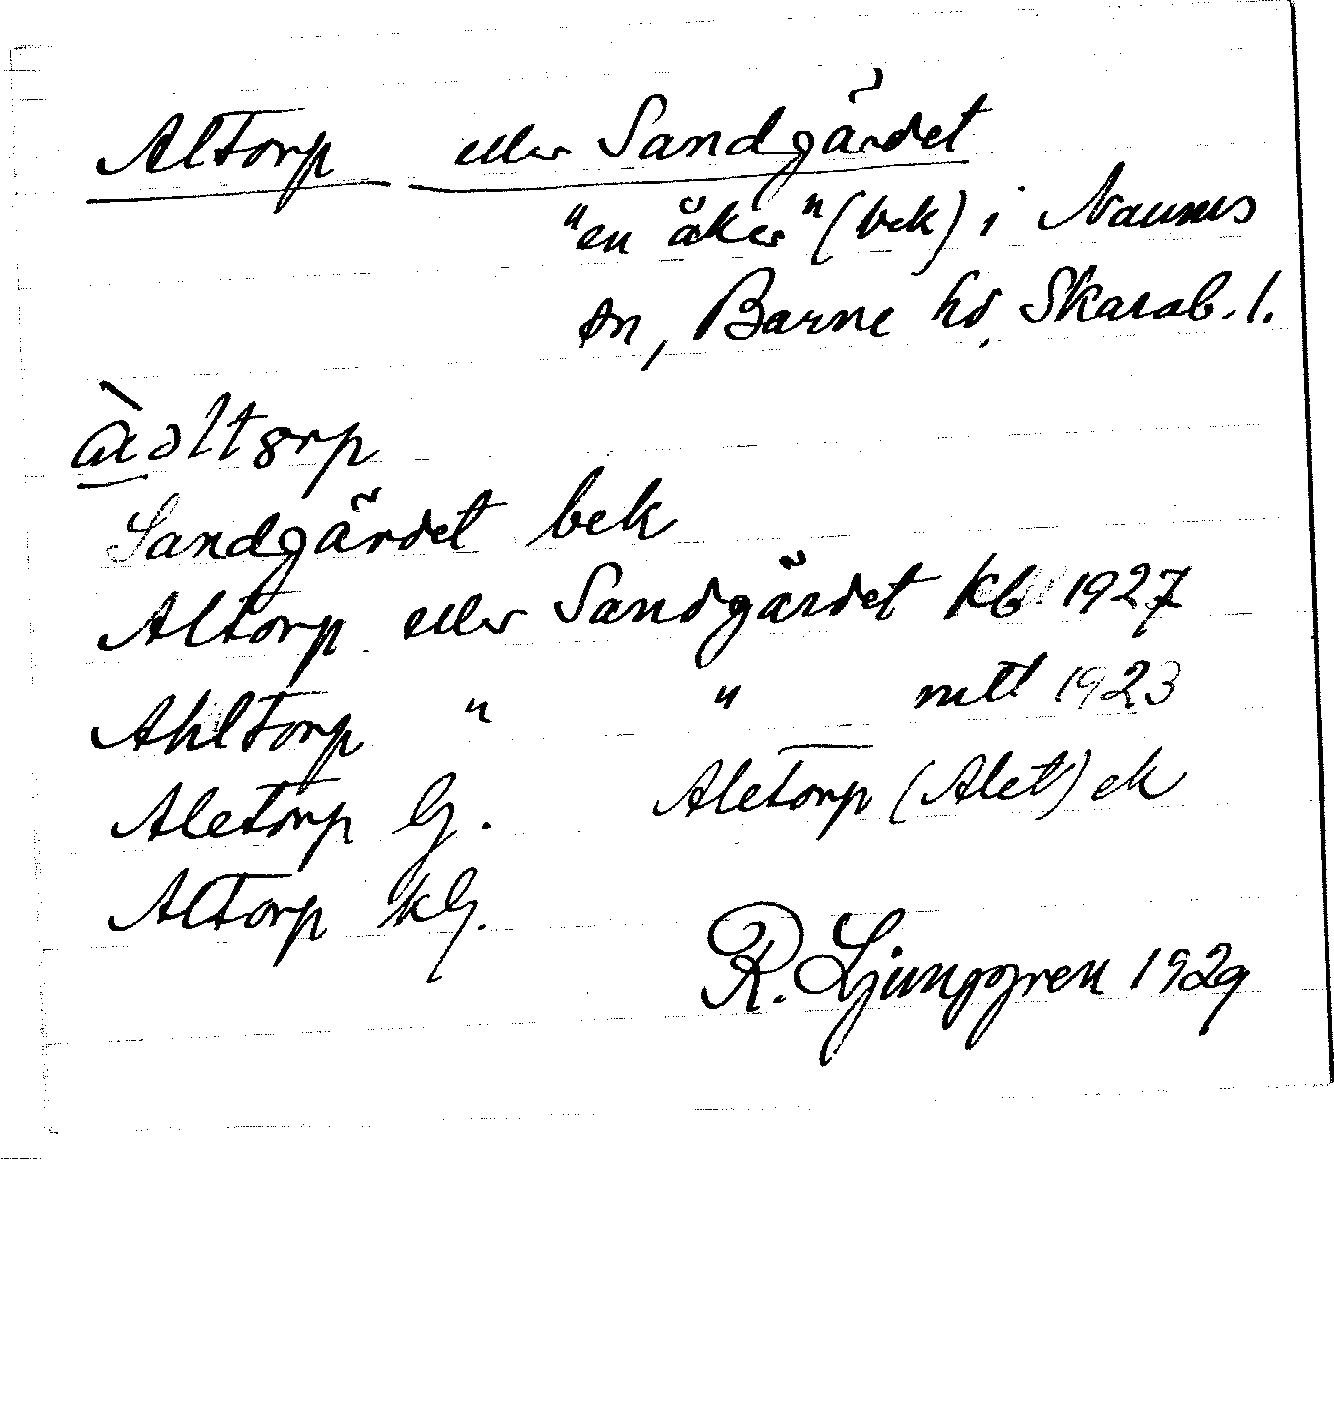 Altorp eller Sandgärdet
"en åker" (bek) i Naums
sn, Barne hd, Skarab. l.
Sandgärdet bek
Altorp eller Sandgärdet kb 1927
Ahltorp " " mtl 1923
Aletorp Gj. Aletorp (Alet) ek
Altorp kGj.
R. Ljunggren 1929